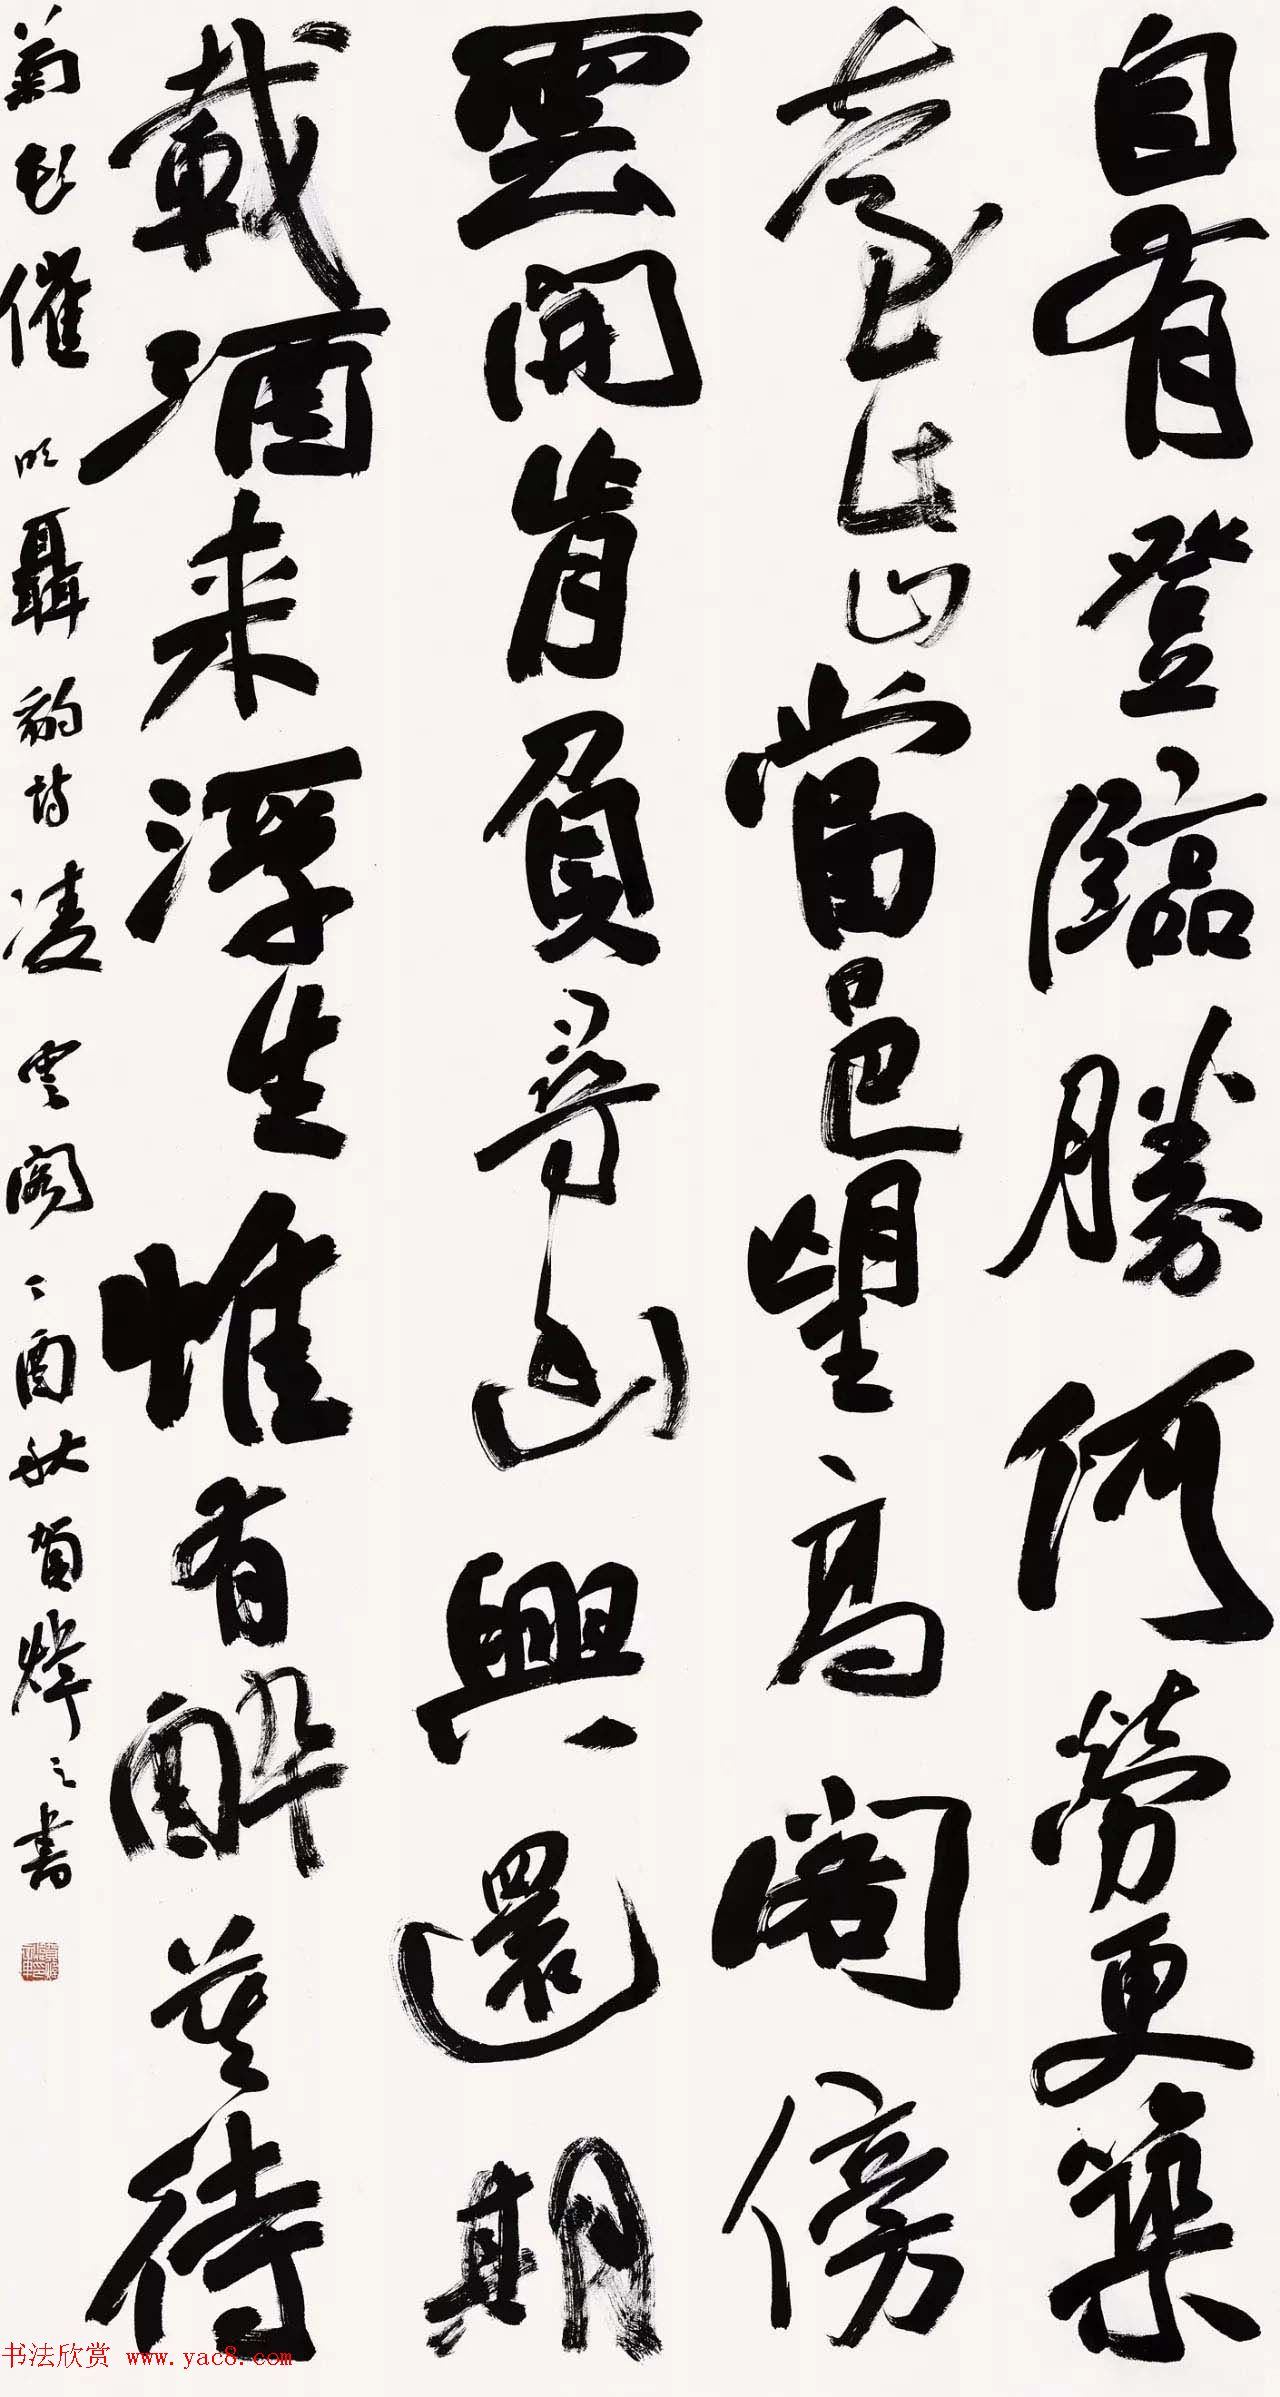 自有登臨勝何勞更築
臺出當邑望高閣傍
雲開肯負尋山興還期
載酒来浮生惟有醉莫待
菊花催 明聶豹詩凌雲閣丁酉秋賀煒之書
书法欣赏 www.yac8.com